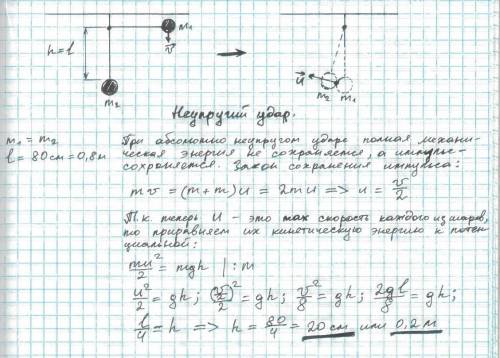 m₁
h=l
v⃗
m₂
u⃗
m₂ m₁
Неупругий удар.
m₁ = m₂
l = 80см = 0,8м
При абсолютно неупругом ударе полная механи-
ческая энергия не сохраняется, а импульс-
сохраняется. Закон сохранения импульса:
mv = (m+m)u = 2mu => u = v/2
Т.к теперь u - это max скорость каждого из шаров,
то приравняем их кинетическую энергию к потен-
циальной:
mu²/2 = mgh |:m
u²/2 = gh; (v/2)²/2 = gh; v²/8 = gh; 2gl/8 = gh;
l/4 = h => h = 80/4 = 20 см или 0,2 м